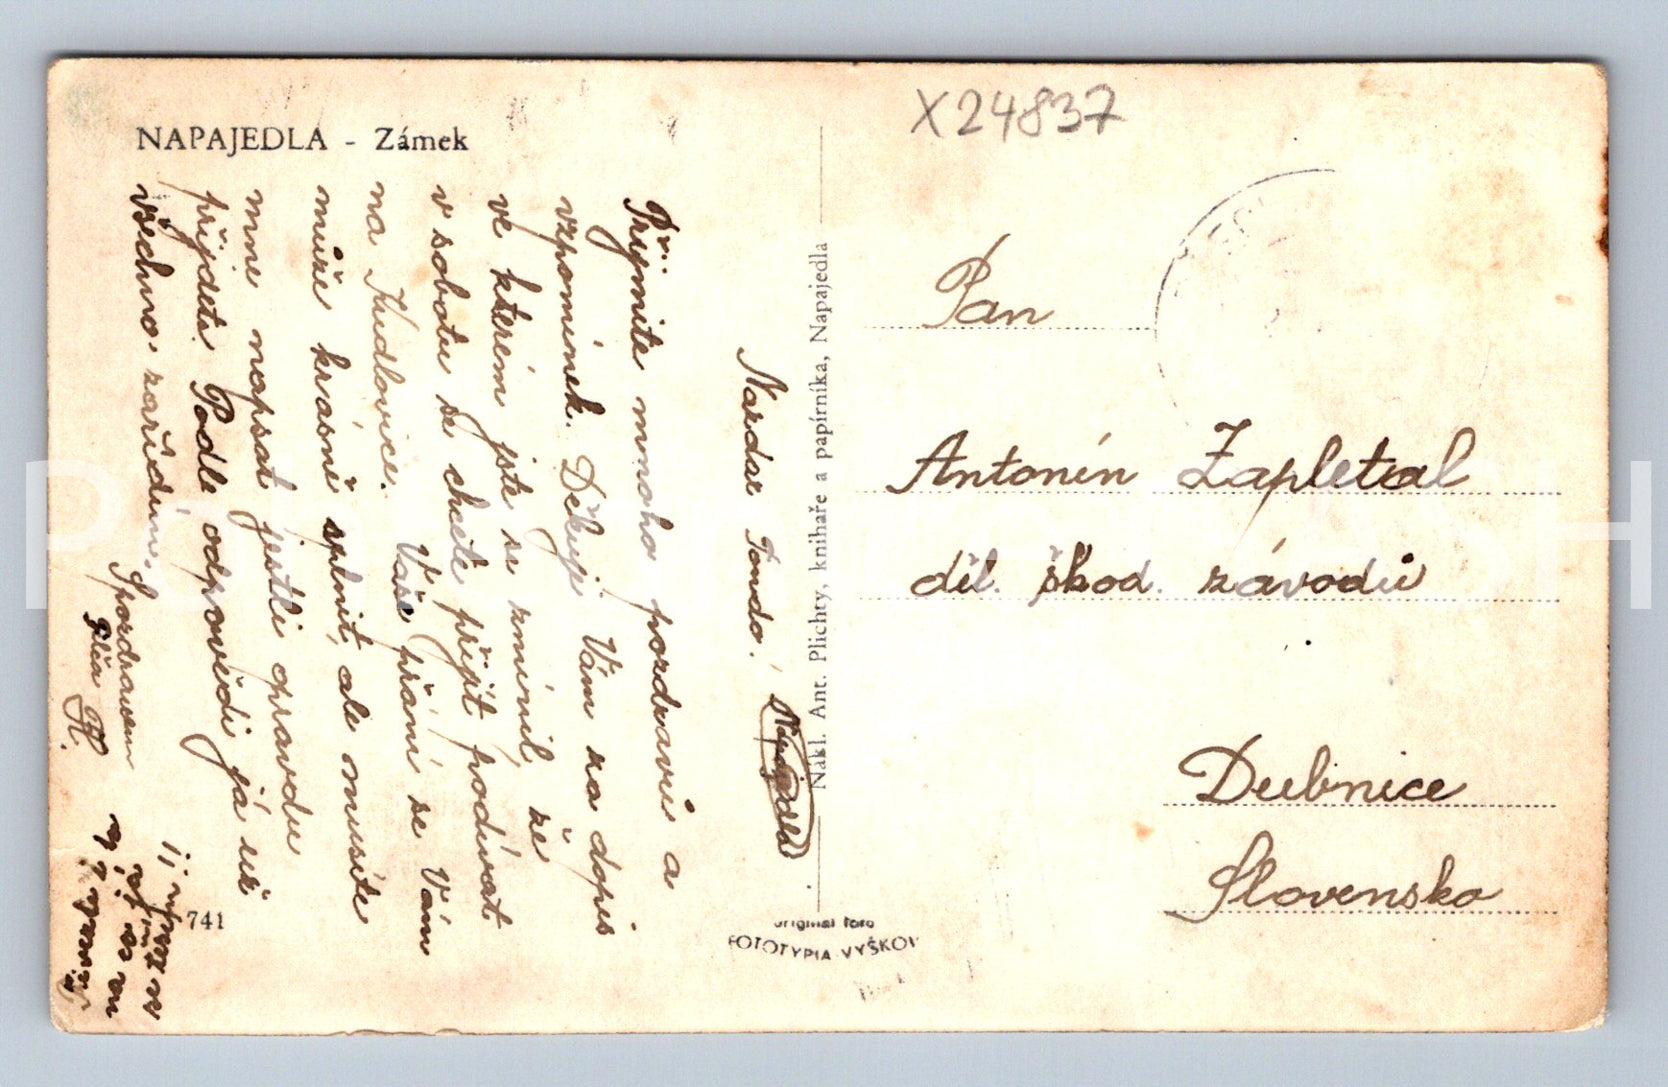 X24837
NAPAJEDLA - Zámek
Přijmite mnoho pozdravů a
vzpomínek. Děkuji Vám za dopis
ve kterém jste se zmínil, že
v sobotu se chcete přijít podívat
na Kudlovice. Vaše přání se Vám
může krásně splnit, ale musíte
mne napsat jestli opravdu
přijdete. Podle odpovědi já už
všechno zařídím.
Spozdravem
Nazdar Tonda!
Nakl. Ant. Plichty, knihaře a papírníka, Napajedla
741
original foto
FOTOTYPIA VYŠKOV
Pan
Antonín Zapletal
děl. škod. závodů
Dubnice
Slovensko